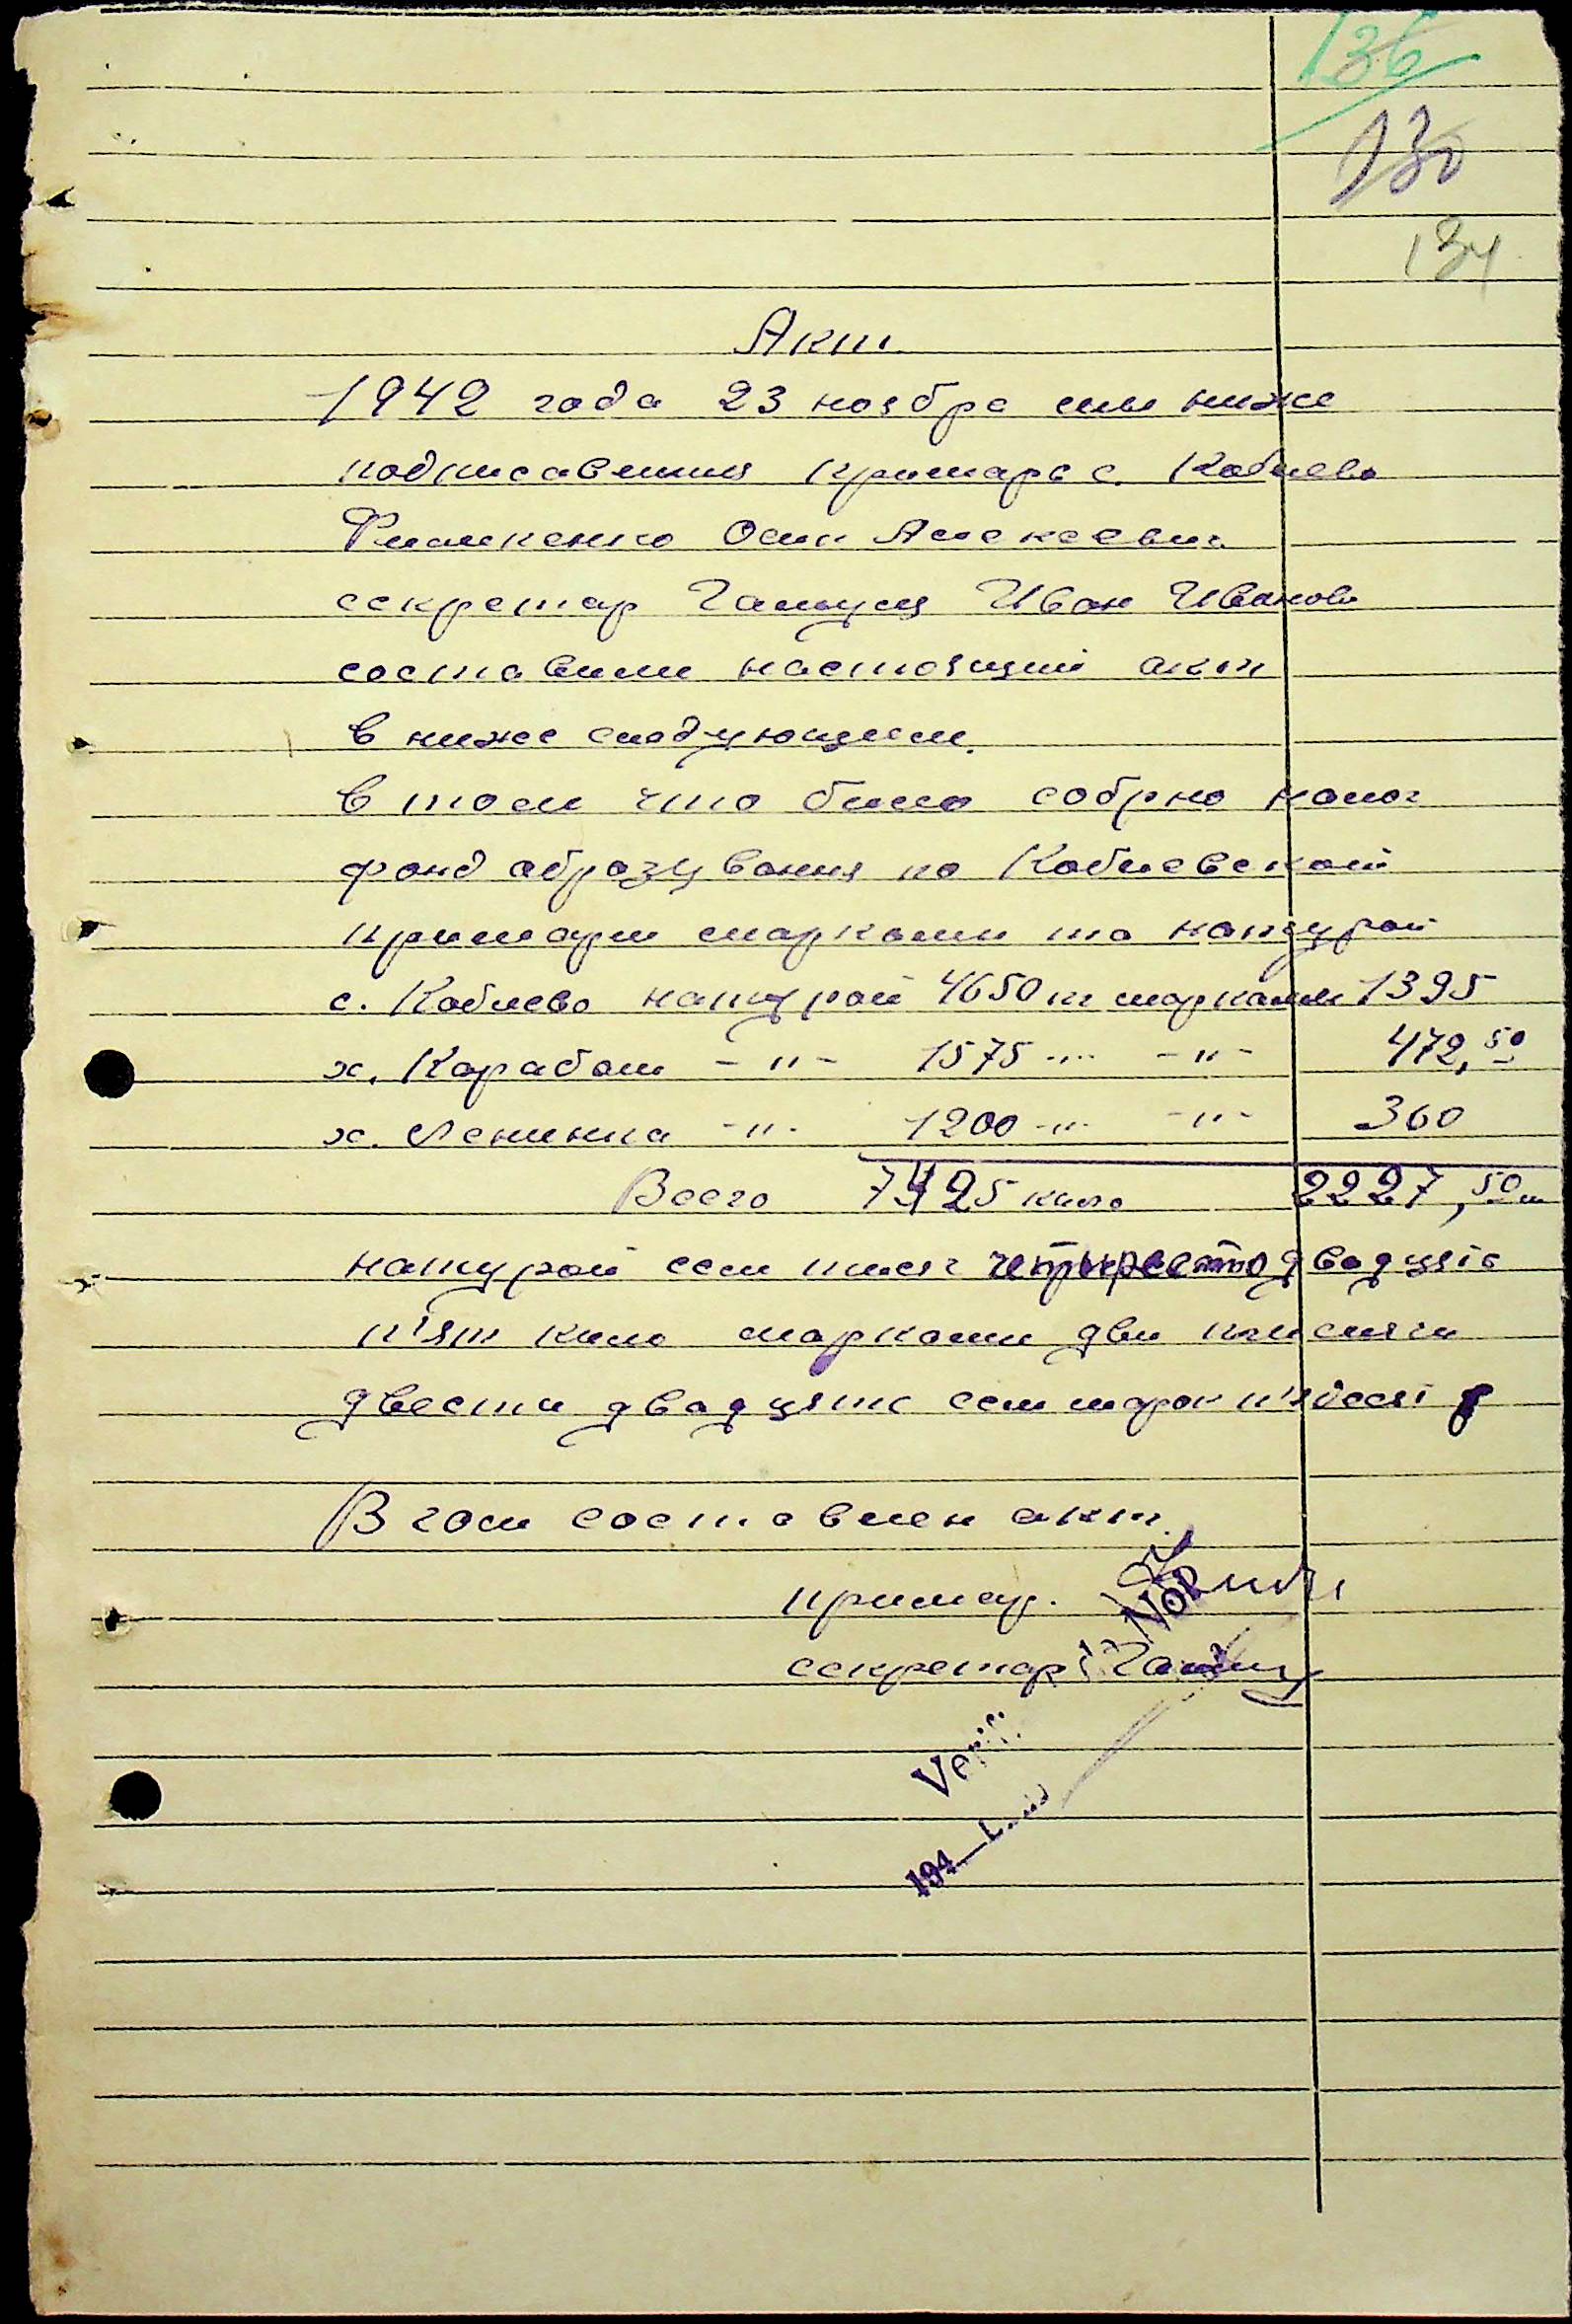 136
130
134
Акт
1942 года 23 ноября мы ниже
подписавшия примарь с. Коблево
Филипенко Осип Алексеевич
секретар Гамуец Иван Иванов
составили настоящий акт
в ниже следующем.
в том что било собрно налог
фонд образувания по Коблевской
примари марками та натурой
с. Коблево натурой 4650 кг марками 1395
х. Карабаш -"- 1575 -"- -"- 472,50
х. Ленинка -"- 1200 -"- -"- 360
Всего 7425 кило 2227,50 м
натурой сем тисяч четиреста двадцять
п'ят кило марками дви тисячи
двести двадцять сем марок п'ядесят
В чом составлен акт.
примар.
секретар
NOR
194